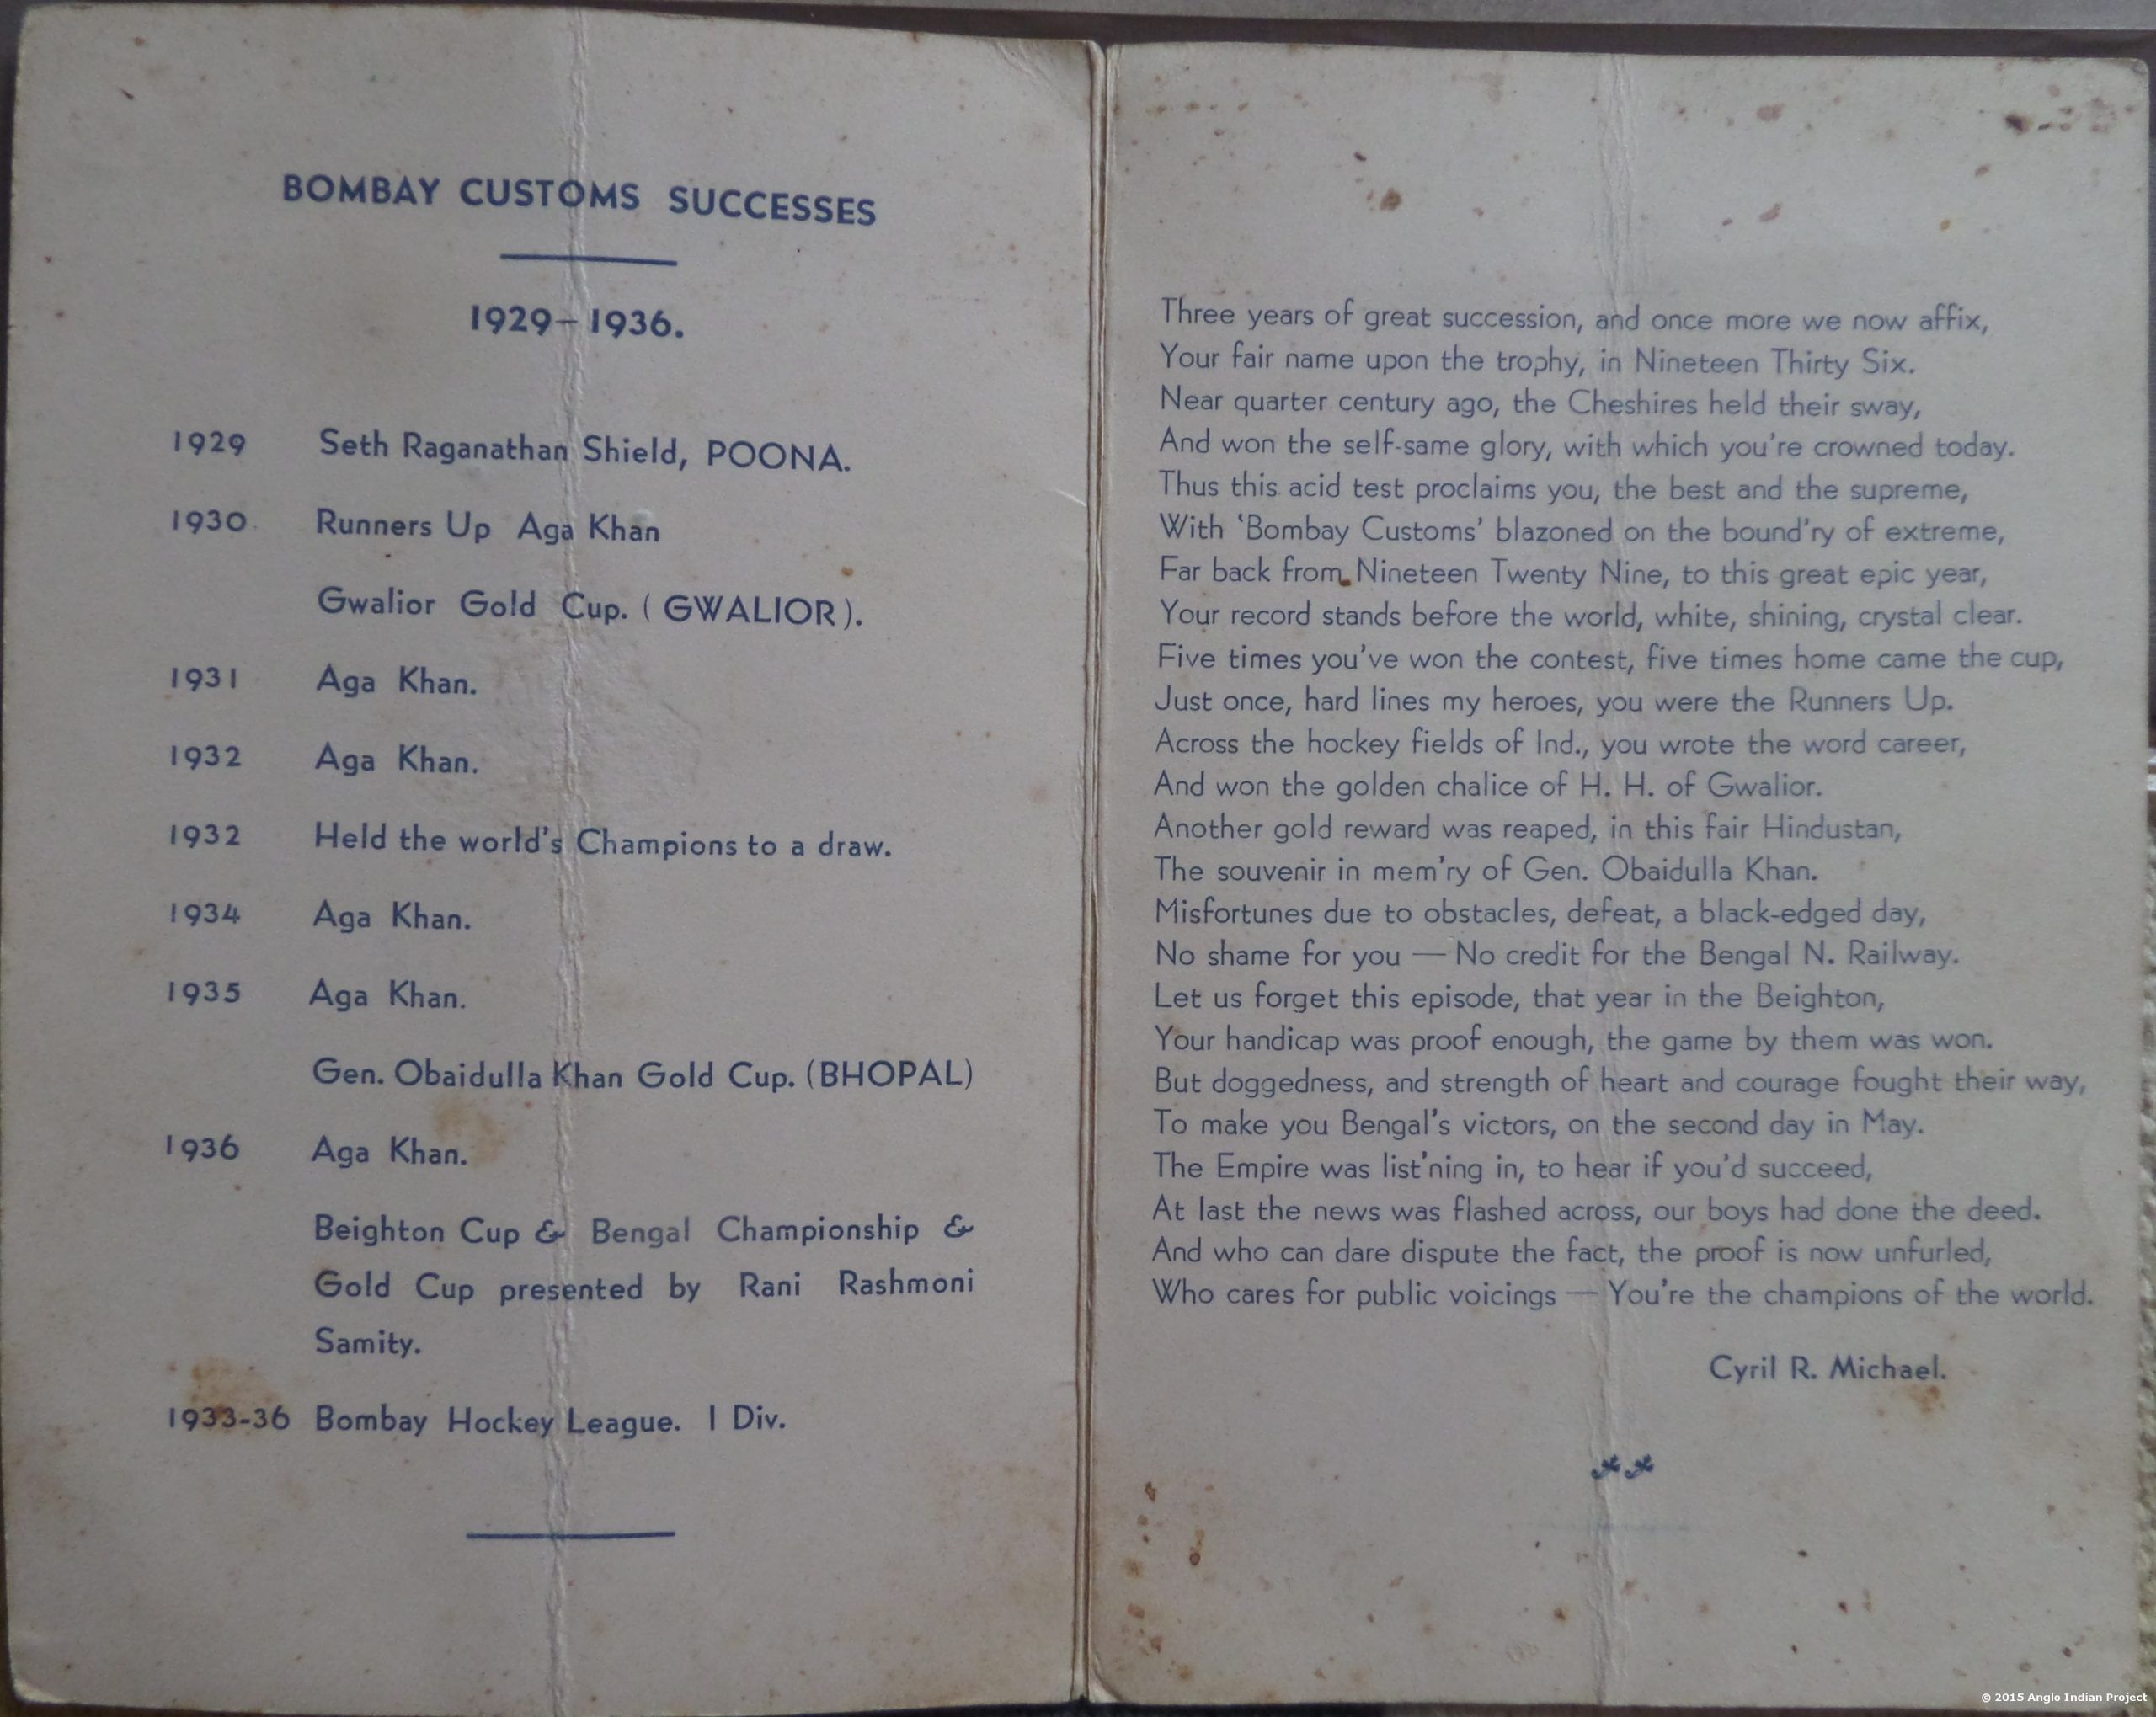 BOMBAY CUSTOMS SUCCESSES
1929-1936.
1929 Seth Raganathan Shield, POONA.
1930 Runners Up Aga Khan
Gwalior Gold Cup. ( GWALIOR ).
1931 Aga Khan.
1932 Aga Khan.
1932 Held the world's Champions to a draw.
1934 Aga Khan.
1935 Aga Khan.
Gen. Obaidulla Khan Gold Cup. (BHOPAL)
1936 Aga Khan.
Beighton Cup & Bengal Championship &
Gold Cup presented by Rani Rashmoni
Samity.
1933-36 Bombay Hockey League. I Div.
Three years of great succession, and once more we now affix,
Your fair name upon the trophy, in Nineteen Thirty Six.
Near quarter century ago, the Cheshires held their sway,
And won the self-same glory, with which you're crowned today.
Thus this acid test proclaims you, the best and the supreme,
With 'Bombay Customs' blazoned on the bound'ry of extreme,
Far back from Nineteen Twenty Nine, to this great epic year,
Your record stands before the world, white, shining, crystal clear.
Five times you've won the contest, five times home came the cup,
Just once, hard lines my heroes, you were the Runners Up.
Across the hockey fields of Ind., you wrote the word career,
And won the golden chalice of H. H. of Gwalior.
Another gold reward was reaped, in this fair Hindustan,
The souvenir in mem'ry of Gen. Obaidulla Khan.
Misfortunes due to obstacles, defeat, a black-edged day,
No shame for you — No credit for the Bengal N. Railway.
Let us forget this episode, that year in the Beighton,
Your handicap was proof enough, the game by them was won.
But doggedness, and strength of heart and courage fought their way,
To make you Bengal's victors, on the second day in May.
The Empire was list'ning in, to hear if you'd succeed,
At last the news was flashed across, our boys had done the deed.
And who can dare dispute the fact, the proof is now unfurled,
Who cares for public voicings — You're the champions of the world.
Cyril R. Michael.
© 2015 Anglo Indian Project